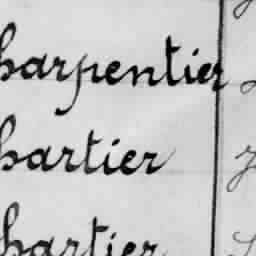 harpentier
hartier
hartier